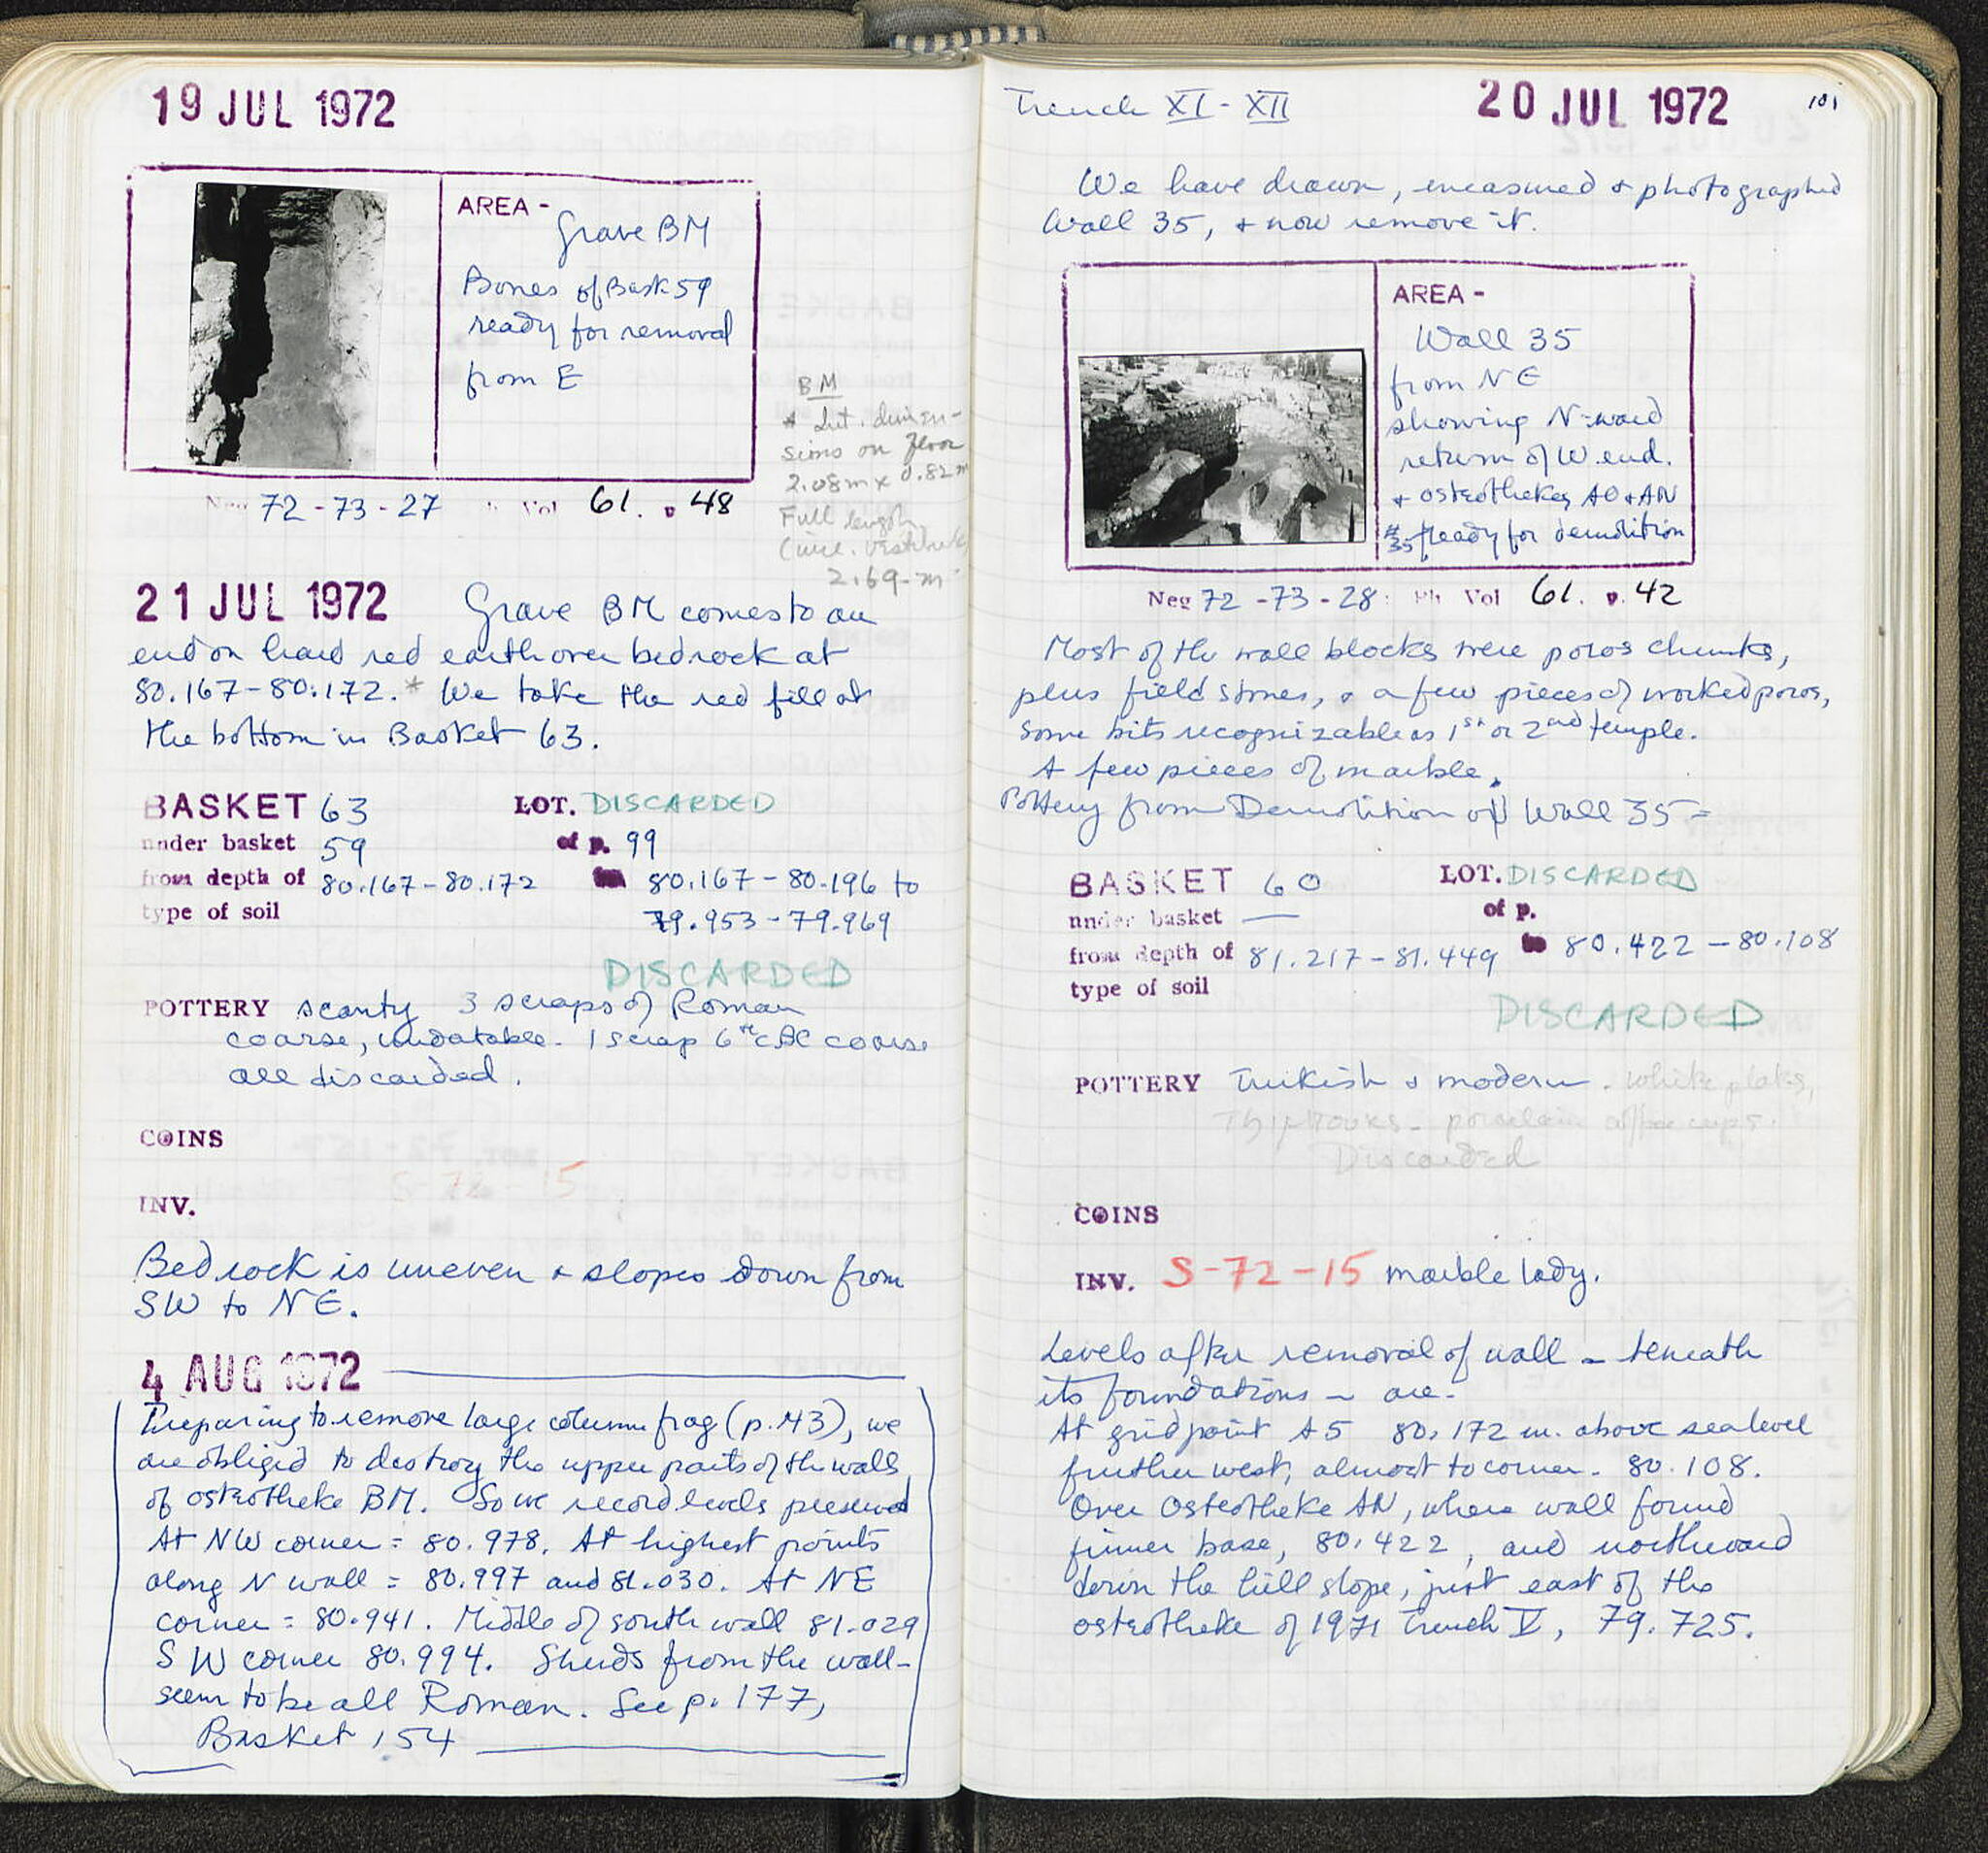 19 JUL 1972
AREA - Grave BM
Bones of Bask 59
ready for removal
from E
Neg 72-73-27 Vol 61. p 48
BM
* Int. dimen-
sions on floor
2.08m x 0.82m
Full length
(incl. vestibule)
2.69-m
21 JUL 1972 Grave BM comes to an
end on hard red earth over bedrock at
80.167-80.172.* We take the red fill at
the bottom in Basket 63.
BASKET 63 LOT. DISCARDED
under basket 59 of p. 99
from depth of 80.167-80.172 to 80.167-80.196 to
type of soil 79.953-79.969
DISCARDED
POTTERY scanty 3 scraps of Roman
coarse, undatable. 1 scrap 6th c BC coarse
all discarded.
COINS
INV.
Bedrock is uneven & slopes down from
SW to NE.
4 AUG 1972
Preparing to remove large column frag (p. 43), we
are obliged to destroy the upper parts of the walls
of osteotheke BM. So we record levels preserved
At NW corner = 80.978. At highest points
along N wall = 80.997 and 81.030. At NE
corner = 80.941. Middle of south wall 81.029
SW corner 80.994. Sherds from the wall-
seem to be all Roman. See p. 177,
Basket 154
Trench XI - XII 20 JUL 1972 101
We have drawn, measured & photographed
Wall 35, & now remove it.
AREA -
Wall 35
from NE
showing N-ward
return of W. end.
& osteothekes AO & AN
#35 ready for demolition
Neg 72-73-28: Ph Vol 61. p. 42
Most of the wall blocks were poros chunks,
plus field stones, & a few pieces of worked poros,
some bits recognizable as 1st or 2nd temple.
A few pieces of marble.
Pottery from Demolition of Wall 35 =
BASKET 60 LOT. DISCARDED
under basket — of p.
from depth of 81.217-81.449 to 80.422-80.108
type of soil
DISCARDED
POTTERY Turkish & modern. white plates,
porcelain coffee cups.
Discarded
COINS
INV. S-72-15 marble lady.
Levels after removal of wall - beneath
its foundations - are-
At grid point A5 80.172 m. above sea level
further west, almost to corner - 80.108.
Over Osteotheke AN, where wall found
firmer base, 80.422, and northward
down the hill slope, just east of the
osteotheke of 1971 Trench V, 79.725.